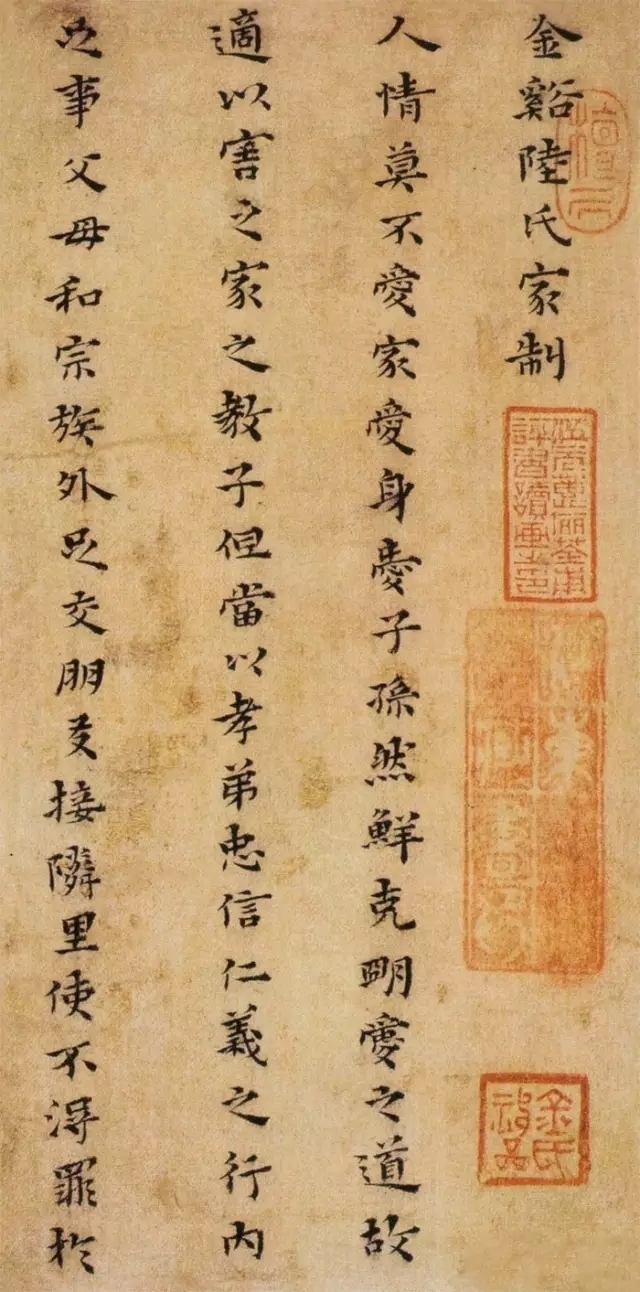 金谿陸氏家制
人情莫不愛家愛身愛子孫然鮮克明愛之道故
適以害之家之教子但當以孝弟忠信仁義之行內
足事父母和宗族外足交朋友接隣里使不淂罪於